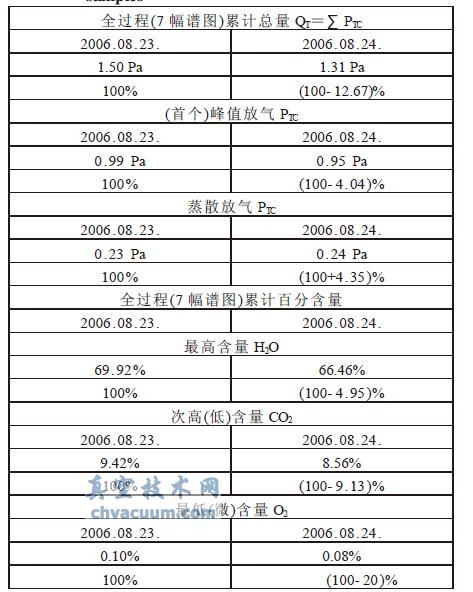 samples
全过程(7 幅谱图)累计总量 QT=∑ PTC
2006.08.23. 2006.08.24.
1.50 Pa 1.31 Pa
100% (100-12.67)%
(首个)峰值放气 PTC
2006.08.23. 2006.08.24.
0.99 Pa 0.95 Pa
100% (100-4.04)%
蒸散放气 PTC
2006.08.23. 2006.08.24.
0.23 Pa 0.24 Pa
100% (100+4.35)%
全过程(7 幅谱图)累计百分含量
2006.08.23. 2006.08.24.
最高含量 H2O
69.92% 66.46%
100% (100-4.95)%
次高(低)含量 CO2
2006.08.23. 2006.08.24.
9.42% 8.56%
100% (100-9.13)%
真空技术网
最低(微)含量 O2
chvacuum.com
2006.08.23. 2006.08.24.
0.10% 0.08%
100% (100-20)%